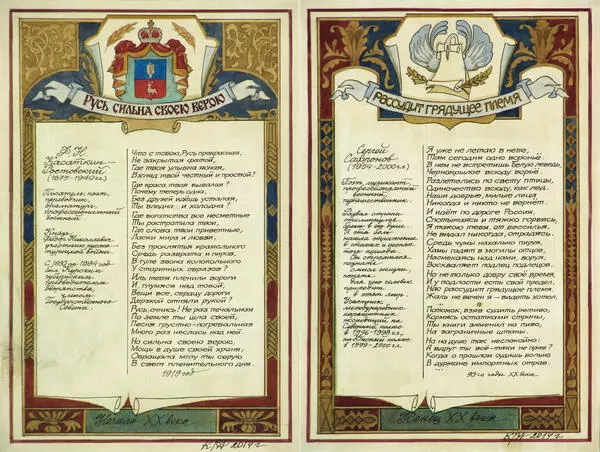 Русь сильна своею верою
Ф. Н.
Касаткин-
Ростовский
(1875-1940 гг.)
Писатель, поэт,
переводчик,
драматург,
профессиональный
военный.
Князь
Фёдор Николаевич,
участник русско-
турецкой войны.
губернским
предводителем
дворянства,
членом
Государственного
Совета.
Что с тобою, Русь прекрасная,
Не закрытая фатой,
Где твоя улыбка ясная,
Взгляд твой честный и простой?
Где краса твоя бывалая?
Почему теперь одна,
Без друзей идёшь усталая,
Ты бледна и холодна?
Где богатства все несметные
Ты растратила твои,
Где слова твои приветные,
Ласки мира и любви,
Без проклятья кромольного
Средь разврата и пиров,
В гуле звона колокольного
У старинных образов?
Иль тебя пленили вороги
И, глумясь над тобой,
Вещи все, сердцу дороги
Дерзкой отняли рукой?
Русь, очнись! Не раз печальная
По земле ты шла своей,
Песня грустно-погребальная
Много раз неслась над ней.
Но сильна своею верою,
Мощь в душе своей храня,
Обращала мглу ты серую
В свет пленительного дня.
1919 год
Начало XX века
КРА 2014 г.
Рассудит грядущее племя
Сергей
Сафронов
(1954-2000 гг.)
Поэт, музыкант,
профессиональный
военный,
путешественник.
Развал страны
откликнулся
болью в его душе
И эта боль
нашла отражение
в стихах и песнях
того периода.
Он стремился
познать
смысл жизни,
понять
Как раз человек
приходит
в этот мир.
Участник
международных
парашютных
экспедиций на
Северный полюс
в 1996-1998 гг.,
на Южный полюс
в 1999-2000 гг.
Я уже не летаю в небе,
Там сегодня одно вороньё.
В нём не встретишь белую лебедь,
Чернокрылое всюду ворьё.
Разлетелись по свету птицы,
Одиночество всюду, как лёд.
Наши добрые, милые лица
Никогда и никто не вернёт.
И идём по дороге Россия,
Спотыкаясь и тяжко горбясь,
Я такою тебя, от бессилья,
Не видал никогда, отродясь.
Средь чумы нахально пируя,
Хамы гадят в могилы отцов,
Насмехаясь над нами, воруя,
Восхваляет подлец подлецов.
Но не только добру своё время,
И у подлости есть свой предел.
Нас рассудит грядущее племя.
Жаль не вечен я – видеть хотел.
...
Потомок, взяв судить ретиво,
Кормясь остатками страны,
Мы книги заменил на пиво,
На заграничные штаны.
Но на душе так неспокойно:
И вдруг ты всё-таки не прав?
Когда о прошлом судишь вольно
В дурмане импортных отрав.
...
90-е годы XX века.
Конец XX века
КРА 2014 г.